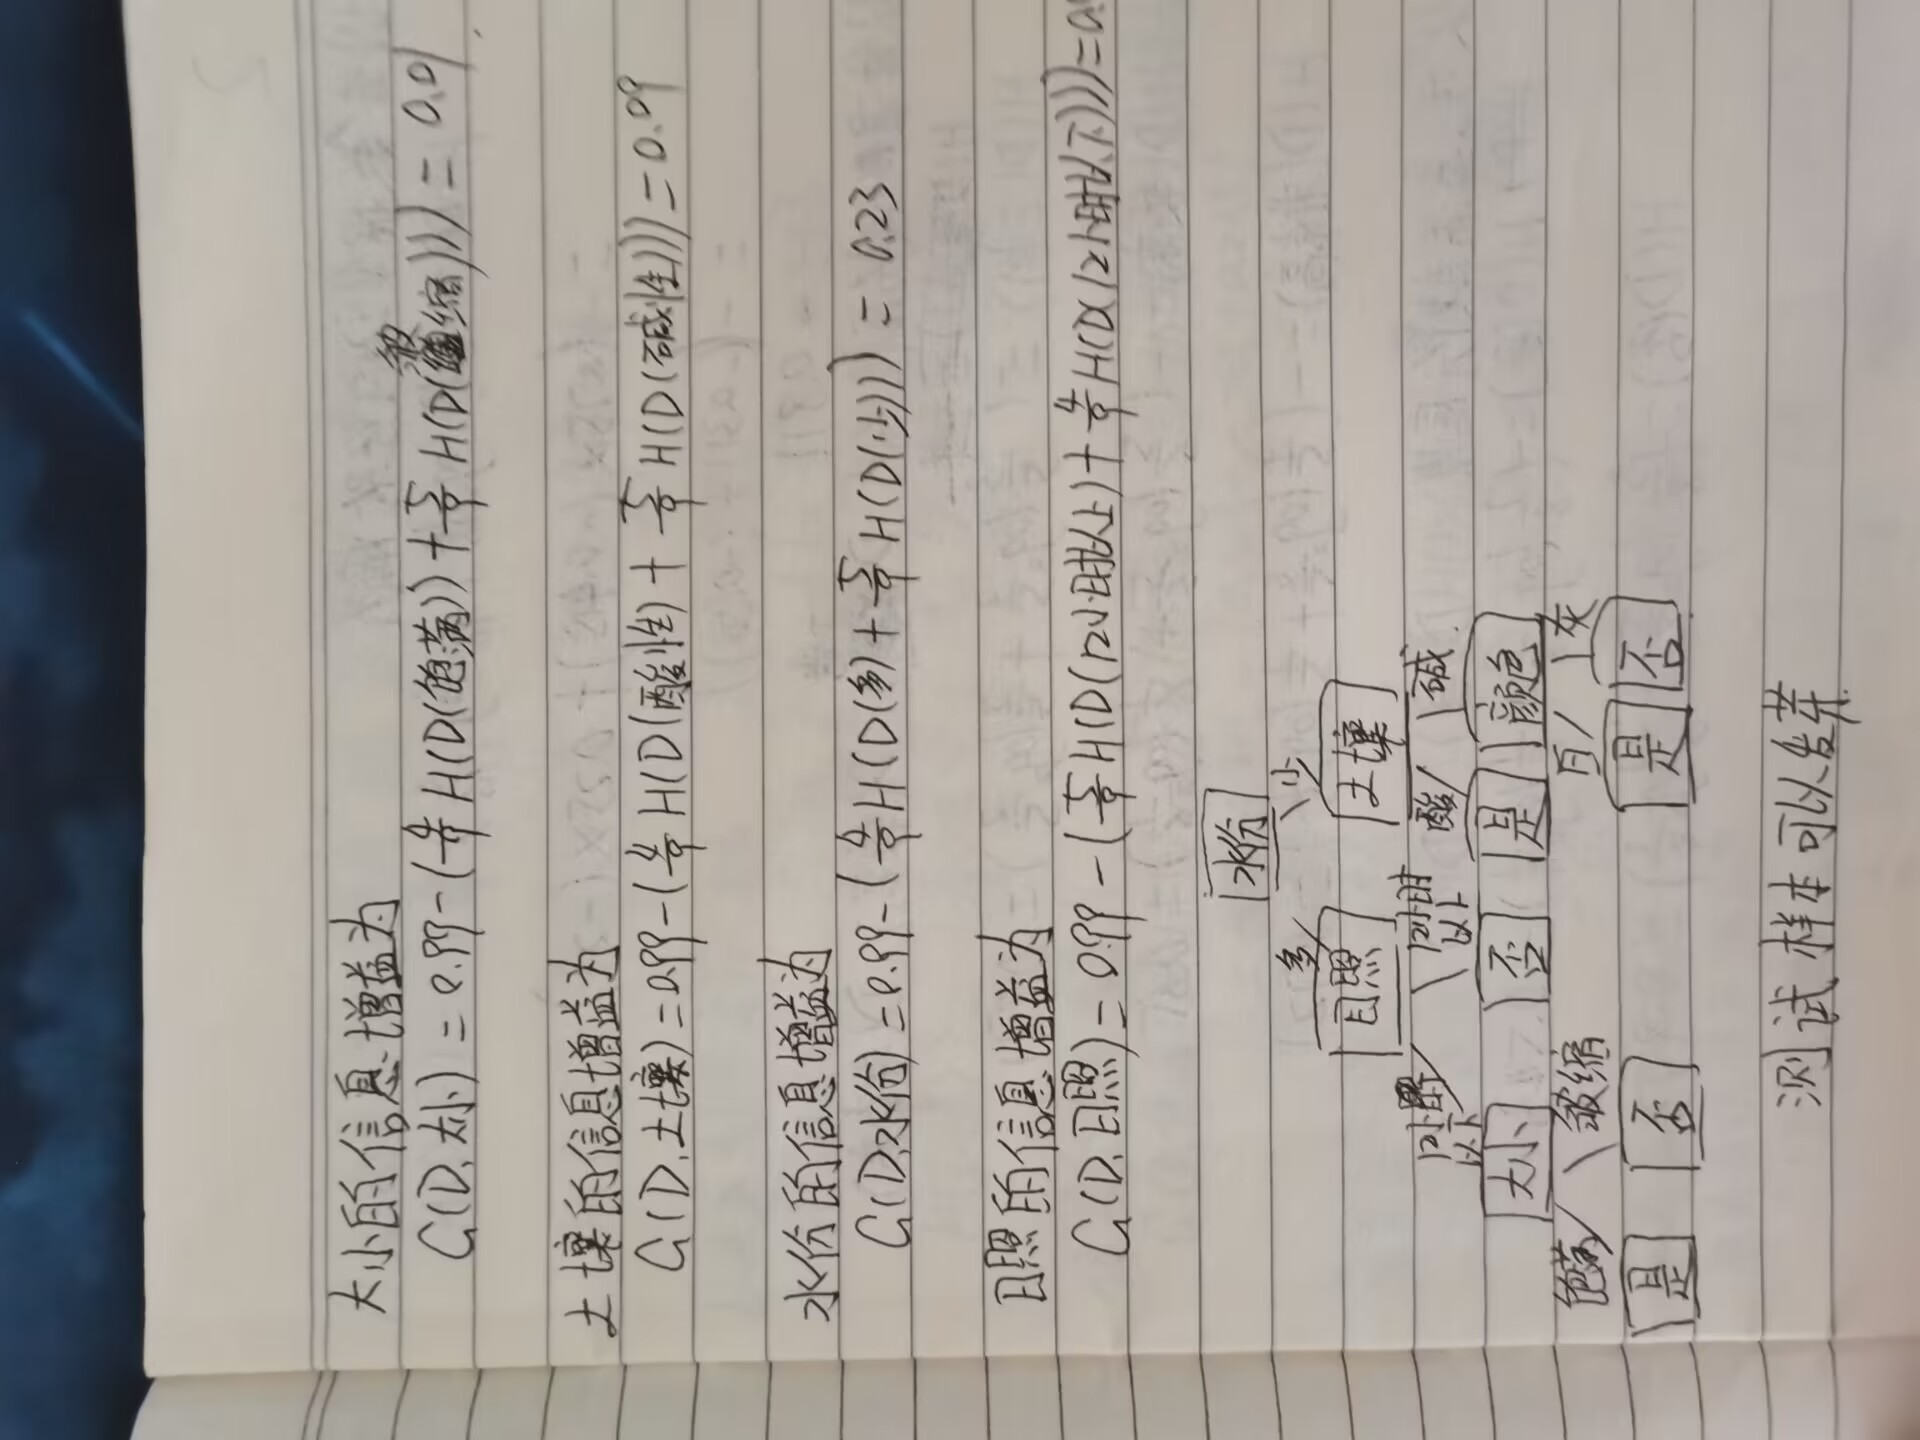 大小的信息增益为
G(D.大小) = 0.99 - (4/9 H(D(饱满)) + 5/9 H(D(皱缩))) = 0.09.
土壤的信息增益为
G(D.土壤) = 0.99 - (4/9 H(D(酸性) + 5/9 H(D(碱性))) = 0.09
水份的信息增益为
G(D.水份) = 0.99 - (4/9 H(D(多) + 5/9 H(D(少))) = 0.23
日照的信息增益为
G(D.日照) = 0.99 - (5/9 H(D(12小时以上) + 4/9 H(D(12小时以下)))) = 0.
水份
多 少
日照 土壤
12小时以下 12小时以上 酸 碱
大小 否 是 颜色
饱满 皱缩 白 灰
是 否 是 否
测试样本可以发芽